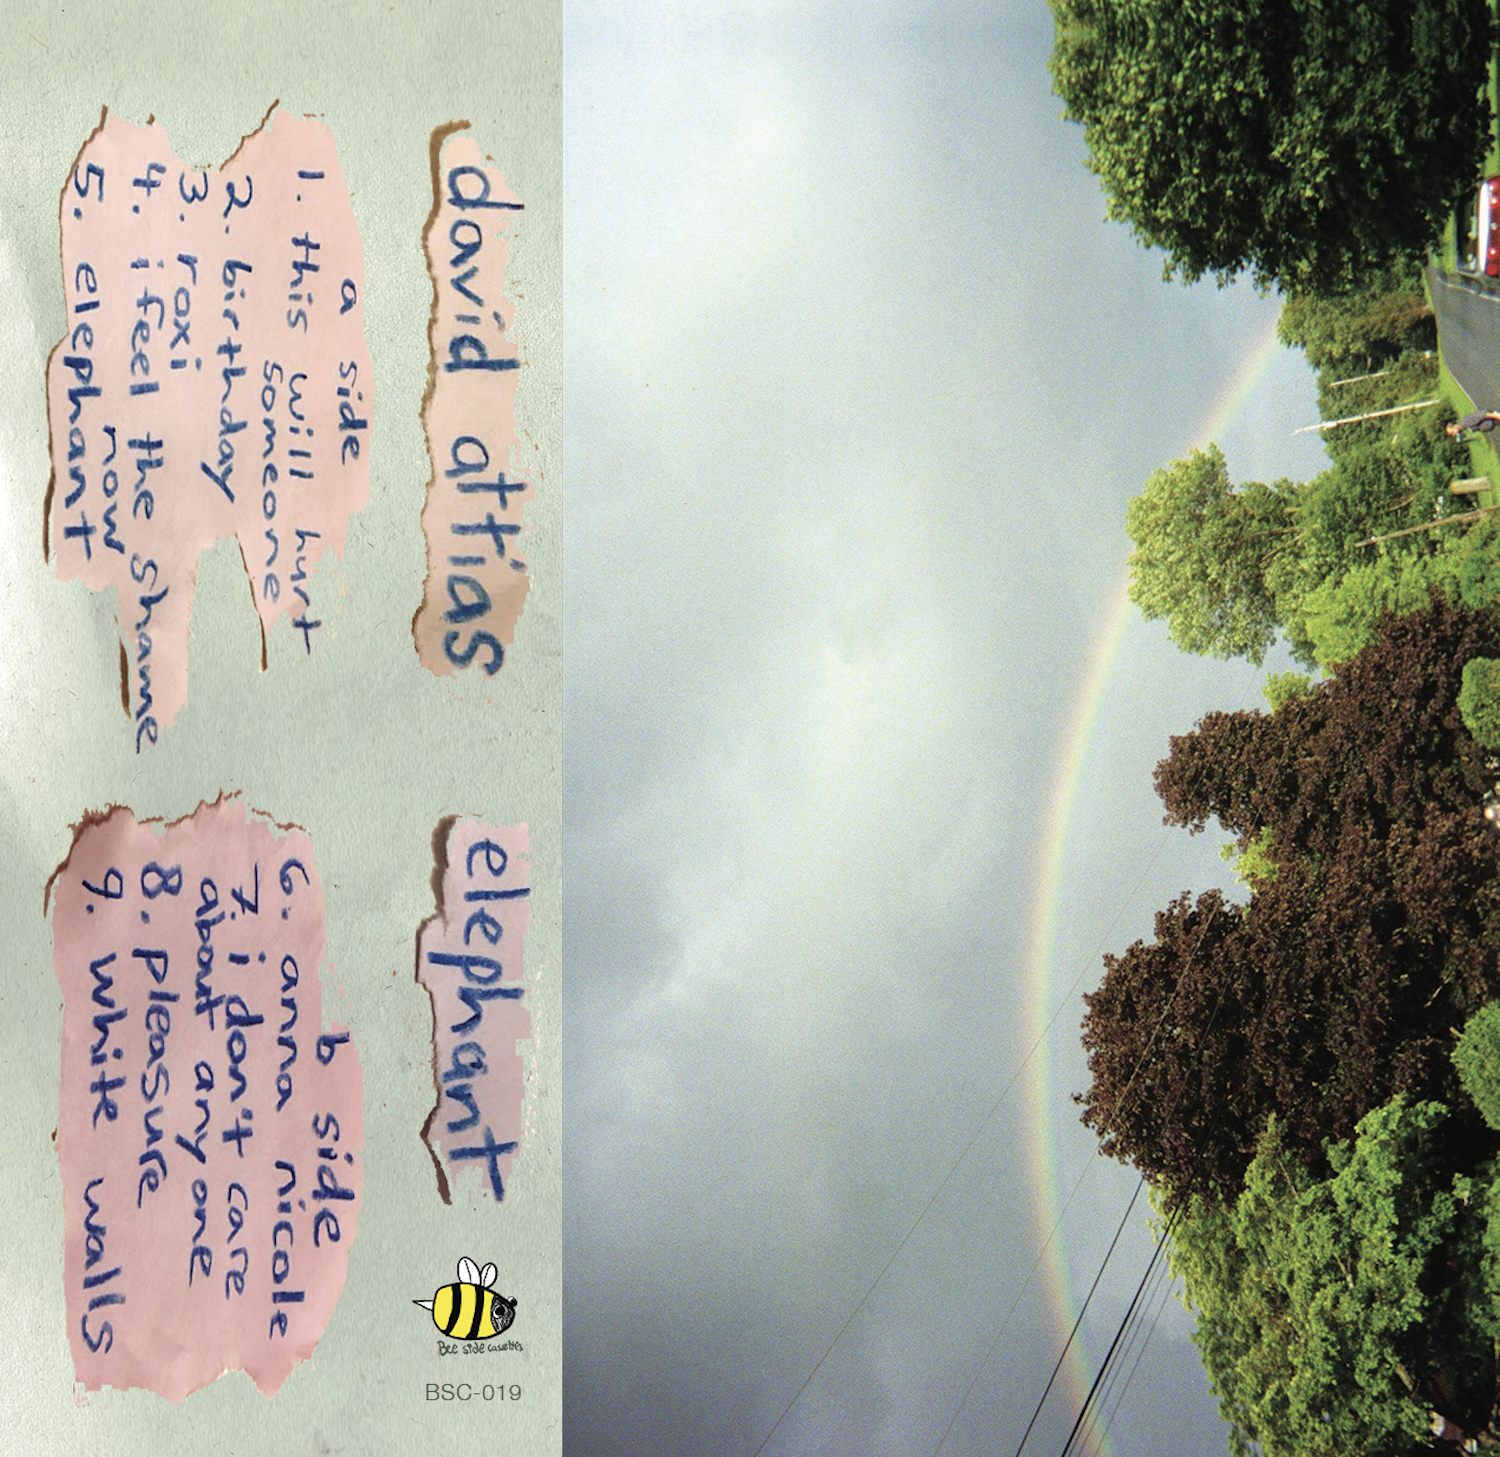 david attias
elephant
a side
1. this will hurt
someone
2. birthday
3. roxi
4. i feel the shame
now
5. elephant
b side
6. anna nicole
7. i don't care
about any one
8. pleasure
9. white walls
Bee side cassettes
BSC-019